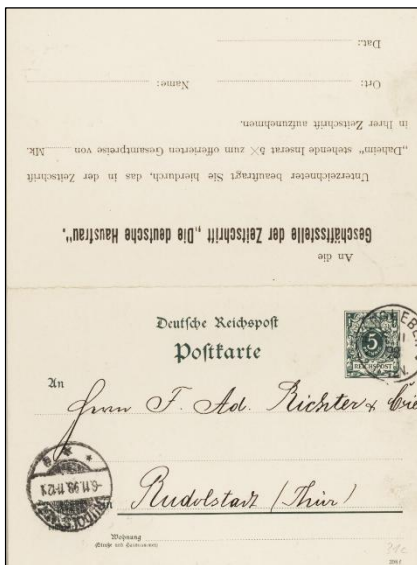 An die
Geschäftsstelle der Zeitschrift „Die deutsche Hausfrau“.
Unterzeichneter beauftragt Sie hierdurch, das in der Zeitschrift
„Daheim“ stehende Inserat 5× zum offerierten Gesamtpreise von Mk.
in Ihrer Zeitschrift aufzunehmen.
Ort: Name:
Dat.:
Deutsche Reichspost
Postkarte
5
REICHSPOST
An
Herrn F. Ad. Richter & Cie
-6.11.98.11-12V.
in Rudolstadt (Thür)
Wohnung
(Straße und Hausnummer)